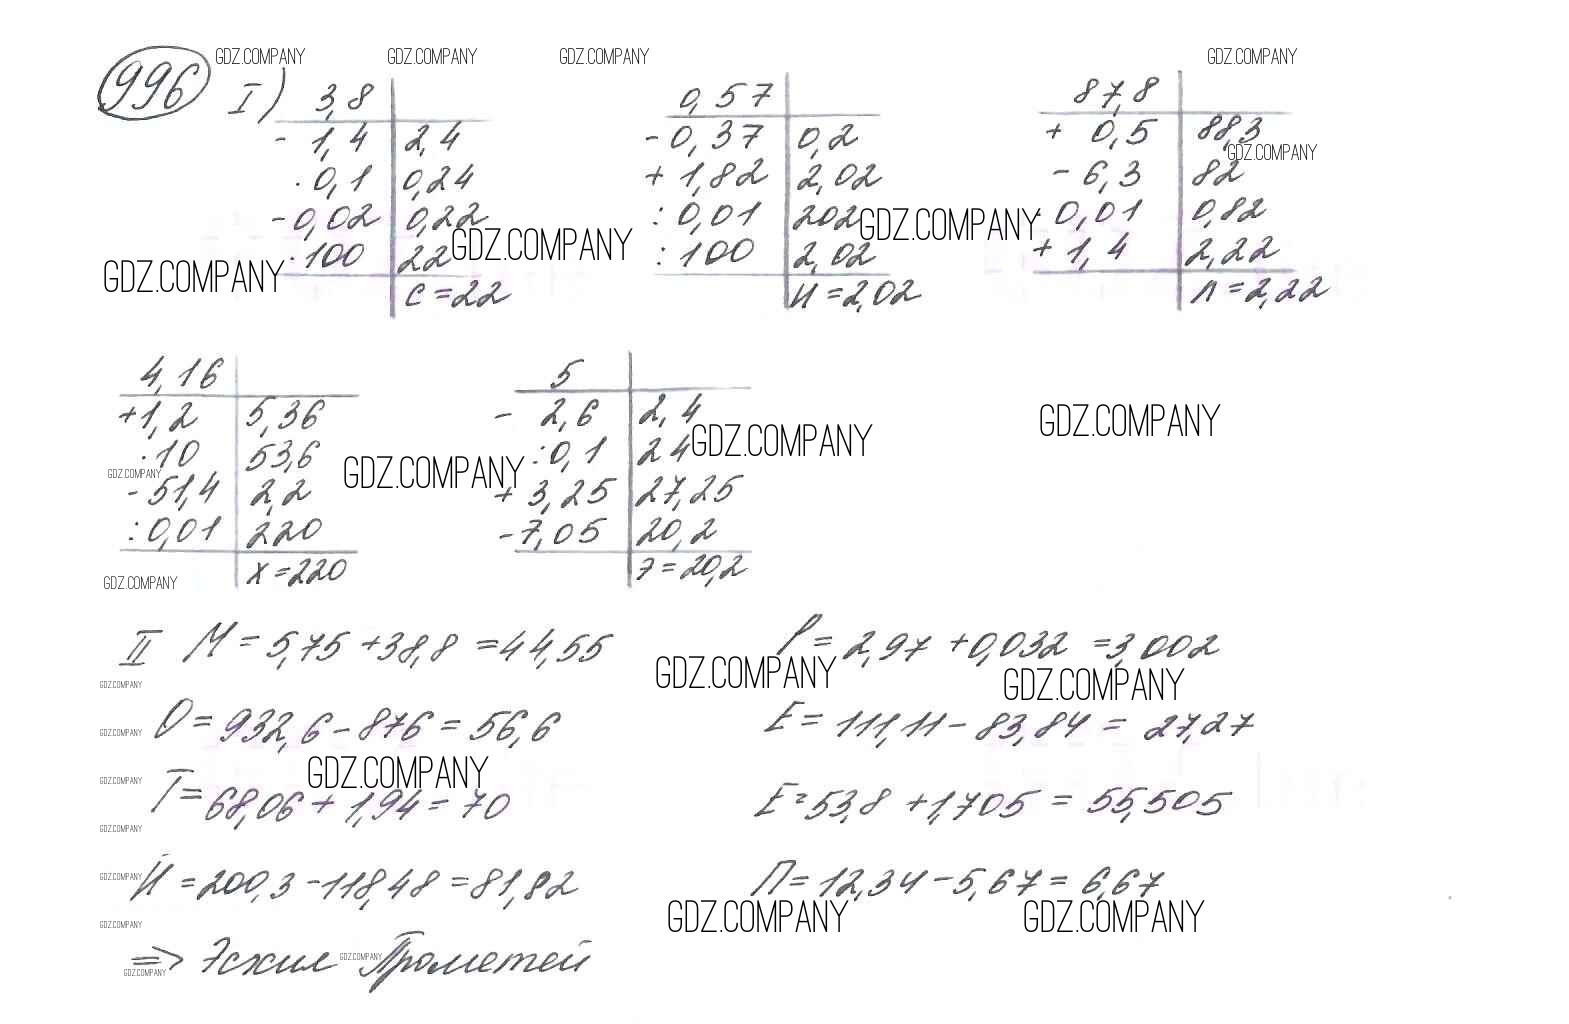 GDZ.COMPANY GDZ.COMPANY GDZ.COMPANY GDZ.COMPANY
996 I) 3,8 0,57 87,8
- 1,4 2,4 - 0,37 0,2 + 0,5 88,3
GDZ.COMPANY
· 0,1 0,24 + 1,82 2,02 - 6,3 82
- 0,02 0,22 : 0,01 202 · 0,01 0,82
GDZ.COMPANY GDZ.COMPANY
· 100 22 : 100 2,02 + 1,4 2,22
GDZ.COMPANY
С = 22 И = 2,02 Л = 2,22
4,16 5
+ 1,2 5,36 - 2,6 2,4
GDZ.COMPANY GDZ.COMPANY
· 10 53,6 : 0,1 24
GDZ.COMPANY GDZ.COMPANY
- 51,4 2,2 + 3,25 27,25
: 0,01 220 - 7,05 20,2
Х = 220 Э = 20,2
GDZ.COMPANY
II М = 5,75 + 38,8 = 44,55 Р = 2,97 + 0,032 = 3,002
GDZ.COMPANY GDZ.COMPANY GDZ.COMPANY
О = 932,6 - 876 = 56,6 Е = 111,11 - 83,84 = 27,27
GDZ.COMPANY
GDZ.COMPANY GDZ.COMPANY
Т = 68,06 + 1,94 = 70 Е = 53,8 + 1,705 = 55,505
GDZ.COMPANY
Й = 200,3 - 118,48 = 81,82 П = 12,34 - 5,67 = 6,67
GDZ.COMPANY
GDZ.COMPANY GDZ.COMPANY GDZ.COMPANY
=> Эсхил Прометей
GDZ.COMPANY GDZ.COMPANY